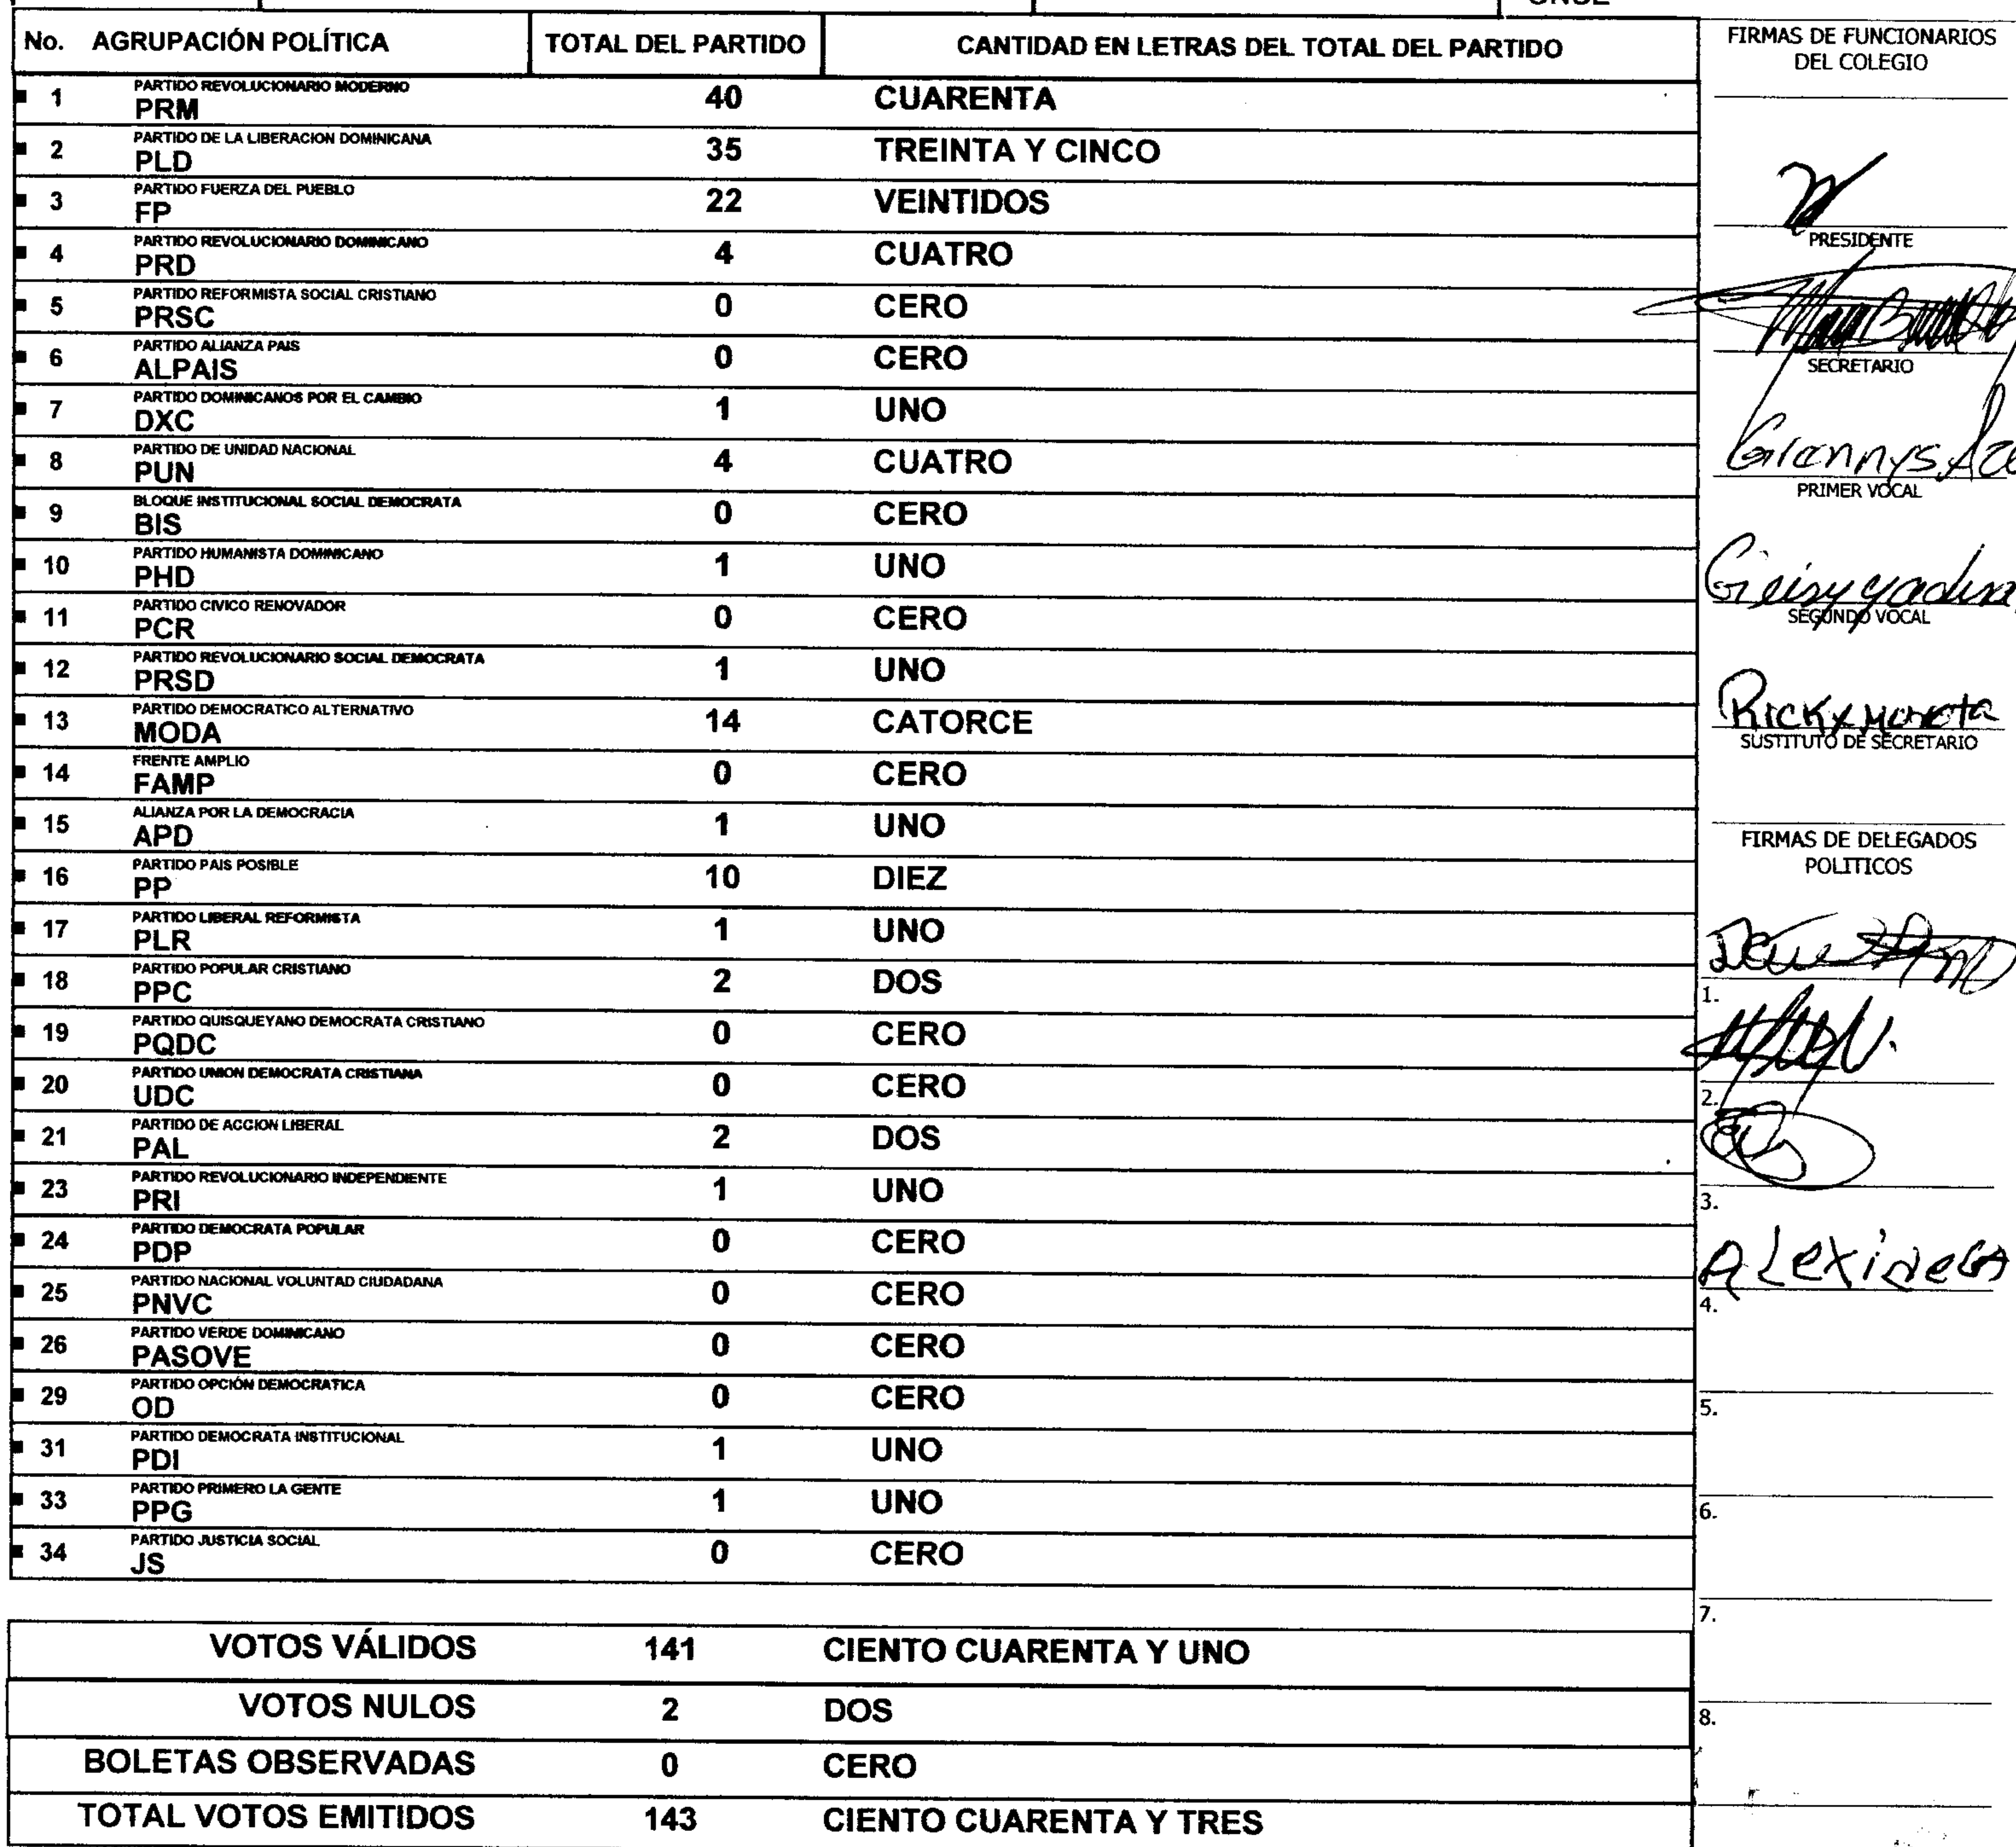 No. AGRUPACIÓN POLÍTICA TOTAL DEL PARTIDO CANTIDAD EN LETRAS DEL TOTAL DEL PARTIDO
1 PARTIDO REVOLUCIONARIO MODERNO
PRM 40 CUARENTA
2 PARTIDO DE LA LIBERACION DOMINICANA
PLD 35 TREINTA Y CINCO
3 PARTIDO FUERZA DEL PUEBLO
FP 22 VEINTIDOS
4 PARTIDO REVOLUCIONARIO DOMINICANO
PRD 4 CUATRO
5 PARTIDO REFORMISTA SOCIAL CRISTIANO
PRSC 0 CERO
6 PARTIDO ALIANZA PAIS
ALPAIS 0 CERO
7 PARTIDO DOMINICANOS POR EL CAMBIO
DXC 1 UNO
8 PARTIDO DE UNIDAD NACIONAL
PUN 4 CUATRO
9 BLOQUE INSTITUCIONAL SOCIAL DEMOCRATA
BIS 0 CERO
10 PARTIDO HUMANISTA DOMINICANO
PHD 1 UNO
11 PARTIDO CIVICO RENOVADOR
PCR 0 CERO
12 PARTIDO REVOLUCIONARIO SOCIAL DEMOCRATA
PRSD 1 UNO
13 PARTIDO DEMOCRATICO ALTERNATIVO
MODA 14 CATORCE
14 FRENTE AMPLIO
FAMP 0 CERO
15 ALIANZA POR LA DEMOCRACIA
APD 1 UNO
16 PARTIDO PAIS POSIBLE
PP 10 DIEZ
17 PARTIDO LIBERAL REFORMISTA
PLR 1 UNO
18 PARTIDO POPULAR CRISTIANO
PPC 2 DOS
19 PARTIDO QUISQUEYANO DEMOCRATA CRISTIANO
PQDC 0 CERO
20 PARTIDO UNION DEMOCRATA CRISTIANA
UDC 0 CERO
21 PARTIDO DE ACCION LIBERAL
PAL 2 DOS
23 PARTIDO REVOLUCIONARIO INDEPENDIENTE
PRI 1 UNO
24 PARTIDO DEMOCRATA POPULAR
PDP 0 CERO
25 PARTIDO NACIONAL VOLUNTAD CIUDADANA
PNVC 0 CERO
26 PARTIDO VERDE DOMINICANO
PASOVE 0 CERO
29 PARTIDO OPCIÓN DEMOCRATICA
OD 0 CERO
31 PARTIDO DEMOCRATA INSTITUCIONAL
PDI 1 UNO
33 PARTIDO PRIMERO LA GENTE
PPG 1 UNO
34 PARTIDO JUSTICIA SOCIAL
JS 0 CERO
VOTOS VÁLIDOS 141 CIENTO CUARENTA Y UNO
VOTOS NULOS 2 DOS
BOLETAS OBSERVADAS 0 CERO
TOTAL VOTOS EMITIDOS 143 CIENTO CUARENTA Y TRES
FIRMAS DE FUNCIONARIOS
DEL COLEGIO
PRESIDENTE
SECRETARIO
Giannys
PRIMER VOCAL
SEGUNDO VOCAL
SUSTITUTO DE SECRETARIO
FIRMAS DE DELEGADOS
POLITICOS
1.
2.
3.
4.
5.
6.
7.
8.